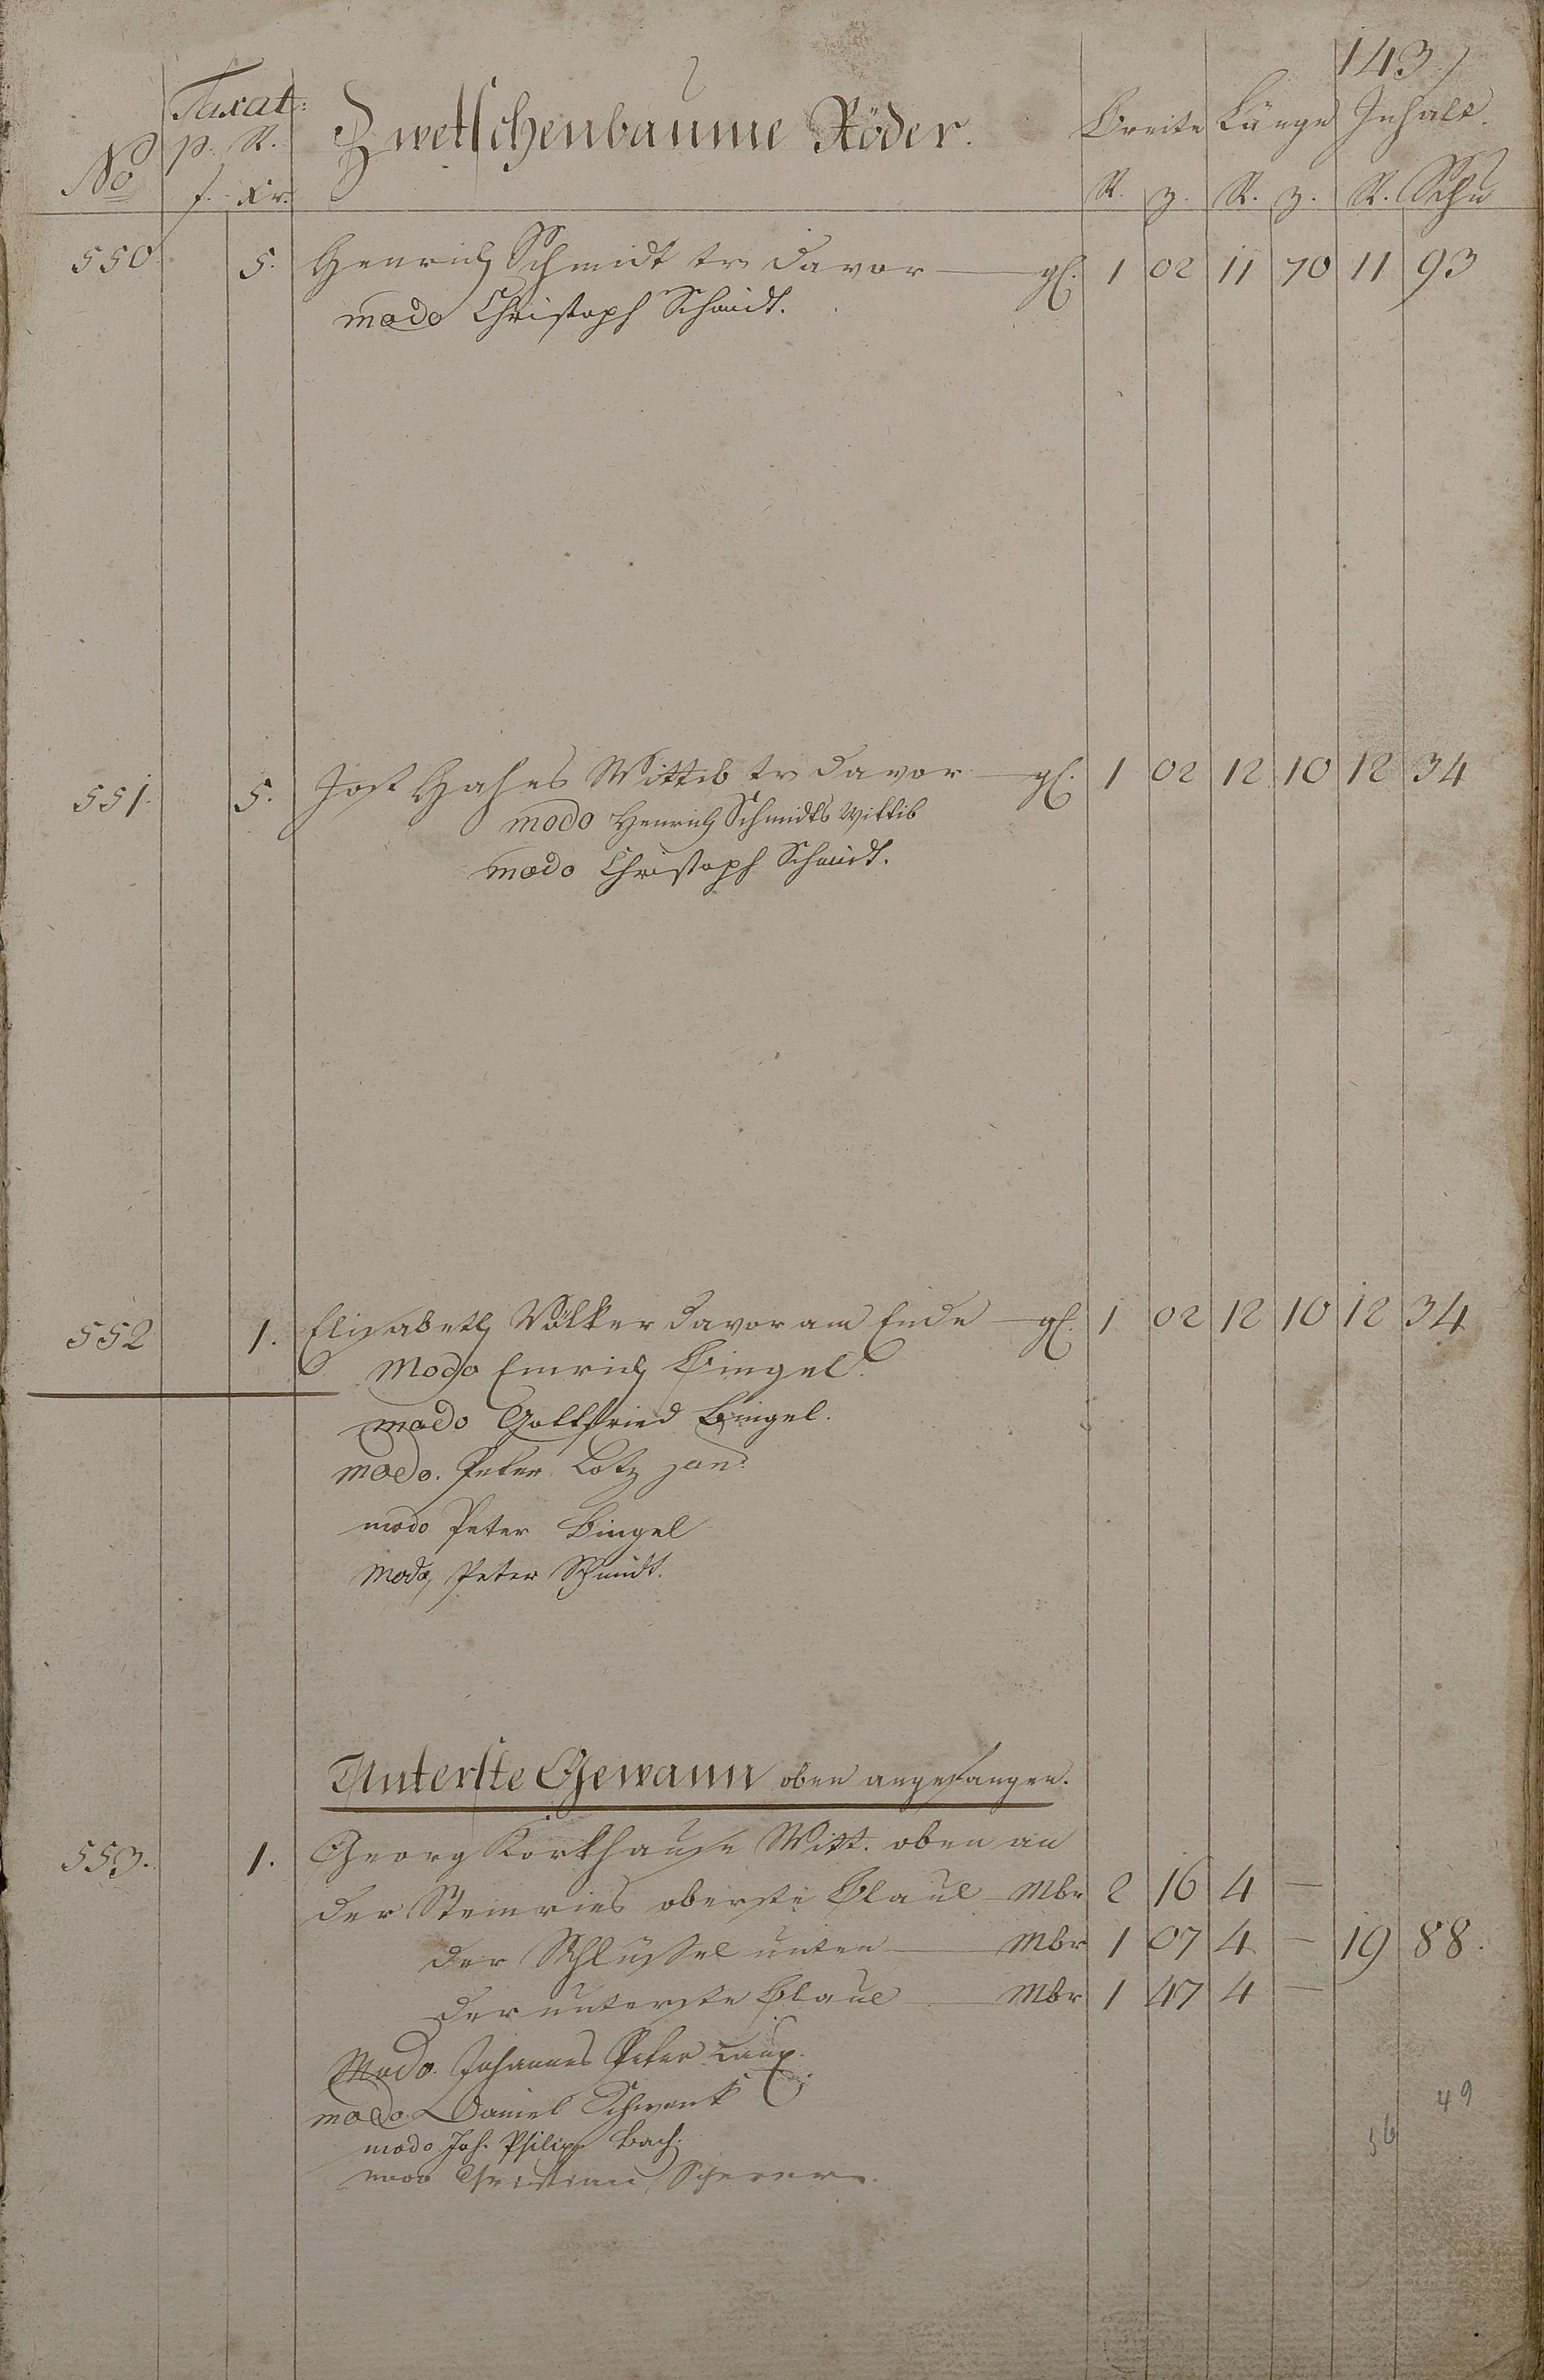 143
No Taxat: p. R. f. xr. Zwetschenbäume Röder. Breite Länge Inhalt.
R. z. R. z. R. Schu
550 5. Henrich Schmidt tr davor gl. 1 02 11 70 11 93
modo Christoph Schmidt.
551. 5. Jost Hahes Wittib tr davor gl. 1 02 12 10 12 34
modo Henrich Schmidts Wittib
modo Christoph Schmidt.
552 1. Elisabeth Völker davor am Ende gl. 1 02 12 10 12 34
Modo Emrich Bingel.
modo Gottfried Bingel.
modo. Peter Lotz jun.
modo Peter Bingel
Modo, Peter Schmidt.
Unterste Gewann oben angefangen.
553. 1. Georg Korkhause Witt. oben an
der Steinries oberste Mbr 2 16 4 —
der Schlüssel unten Mbr 1 07 4 — 19 88.
der unterste Mbr 1 47 4 —
Modo. Johannes Peter Laux.
modo. Daniel Schwenk
modo Joh. Philipp Bach.
modo Christian Scherer.
56 49